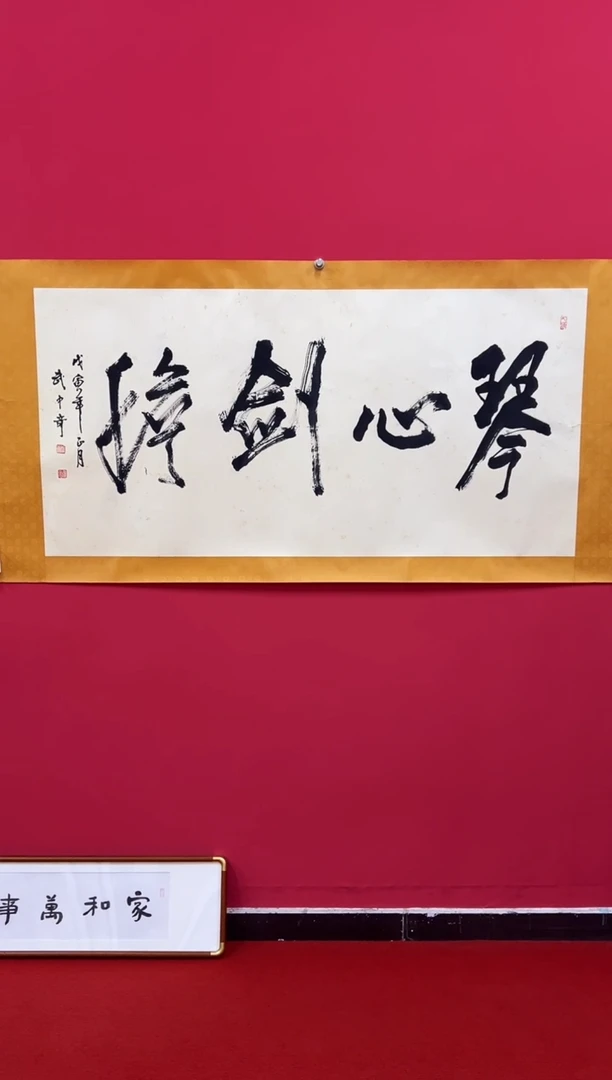 琴心剑膽
戊寅年正月
武中奇
家和萬事